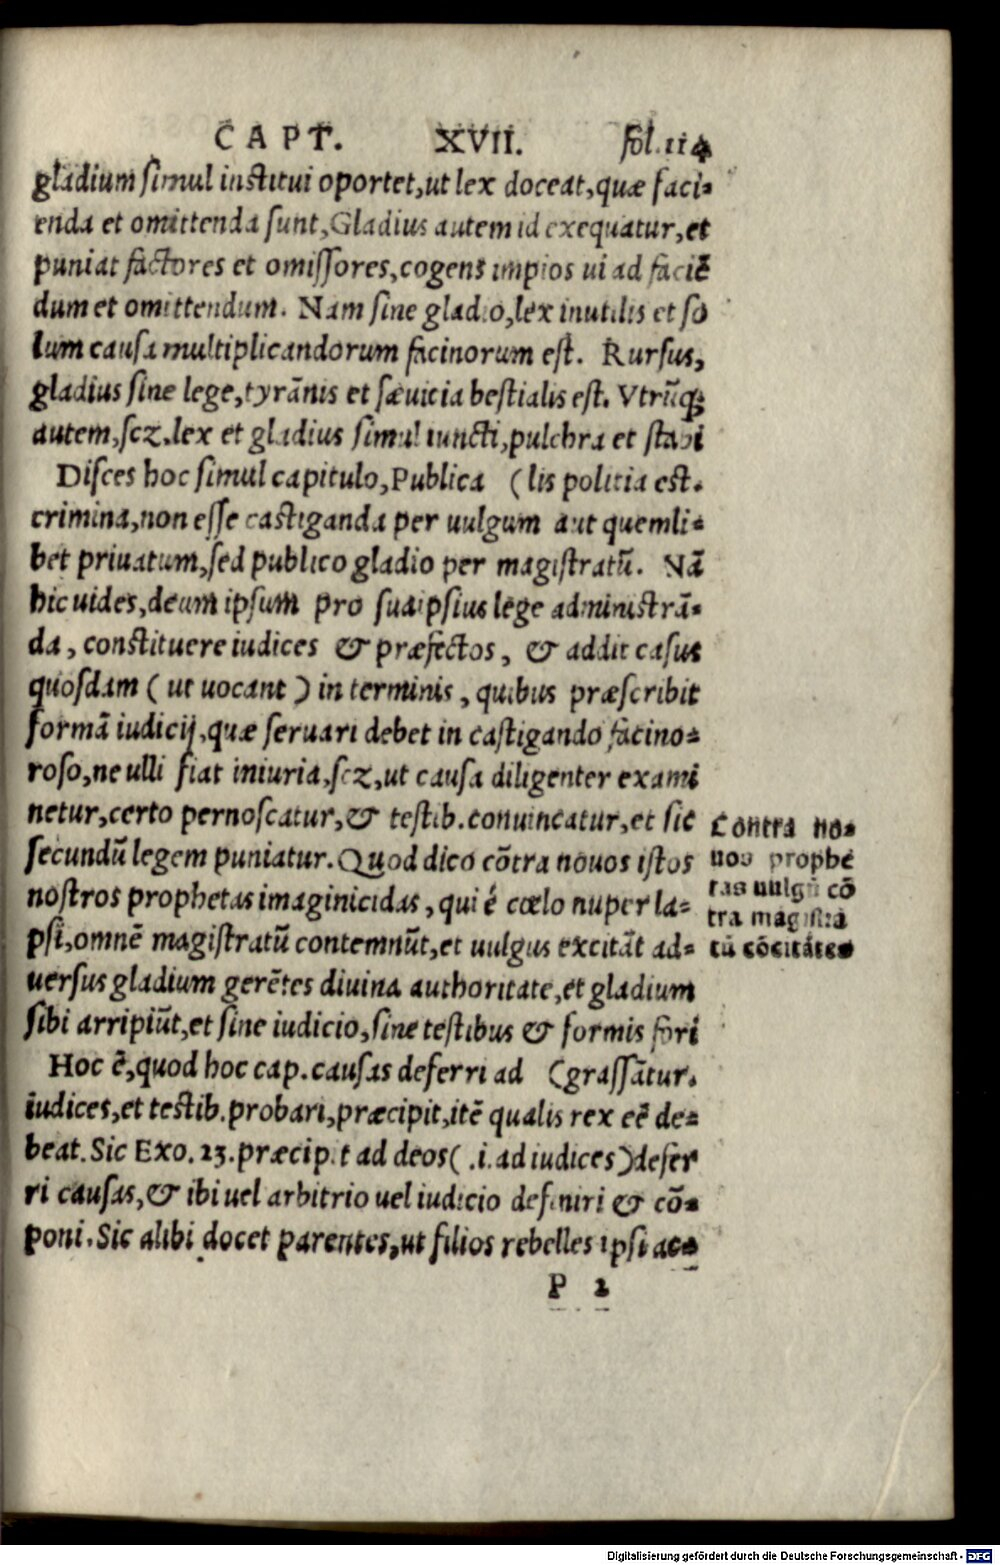 CAPT. XVII. fol.114
gladium simul institui oportet,ut lex doceat,quæ faci-
enda et omittenda sunt,Gladius autem id exequatur,et
puniat factores et omissores,cogens impios ui ad faciẽ
dum et omittendum. Nam sine gladio,lex inutilis et so
lum causa multiplicandorum facinorum est. Rursus,
gladius sine lege,tyrãnis et sæuicia bestialis est. Vtrũq;
autem,scz.lex et gladius simul iuncti,pulchra et stabi
Disces hoc simul capitulo,Publica (lis politia est.
crimina,non esse castiganda per uulgum aut quemli-
bet priuatum,sed publico gladio per magistratũ. Nã
hic uides,deum ipsum pro suaipsius lege administrã-
da, constituere iudices & præfectos, & addit casus
quosdam (ut uocant) in terminis, quibus præscribit
formã iudicij,quæ seruari debet in castigando facino-
roso,ne ulli fiat iniuria,scz,ut causa diligenter exami
netur,certo pernoscatur,& testib.conuincatur,et sic
secundũ legem puniatur. Quod dico cõtra nouos istos
nostros prophetas imaginicidas, qui é cœlo nuper la-
psi,omnẽ magistratũ contemnũt,et uulgus excitãt ad-
uersus gladium gerẽtes diuina authoritate,et gladium
sibi arripiũt,et sine iudicio,sine testibus & formis fori
Hoc ẽ,quod hoc cap.causas deferri ad (grassãtur.
iudices,et testib.probari,præcipit,itẽ qualis rex eẽ de-
beat. Sic Exo. 23. præcipit ad deos( .i. ad iudices)defer
ri causas,& ibi uel arbitrio uel iudicio definiri & cõ-
poni. Sic alibi docet parentes,ut filios rebelles ipsi ac-
P 2
Contra no-
uos prophe
tas uulgũ cõ
tra magistra
tũ cõcitãtes
Digitalisierung gefördert durch die Deutsche Forschungsgemeinschaft - DFG